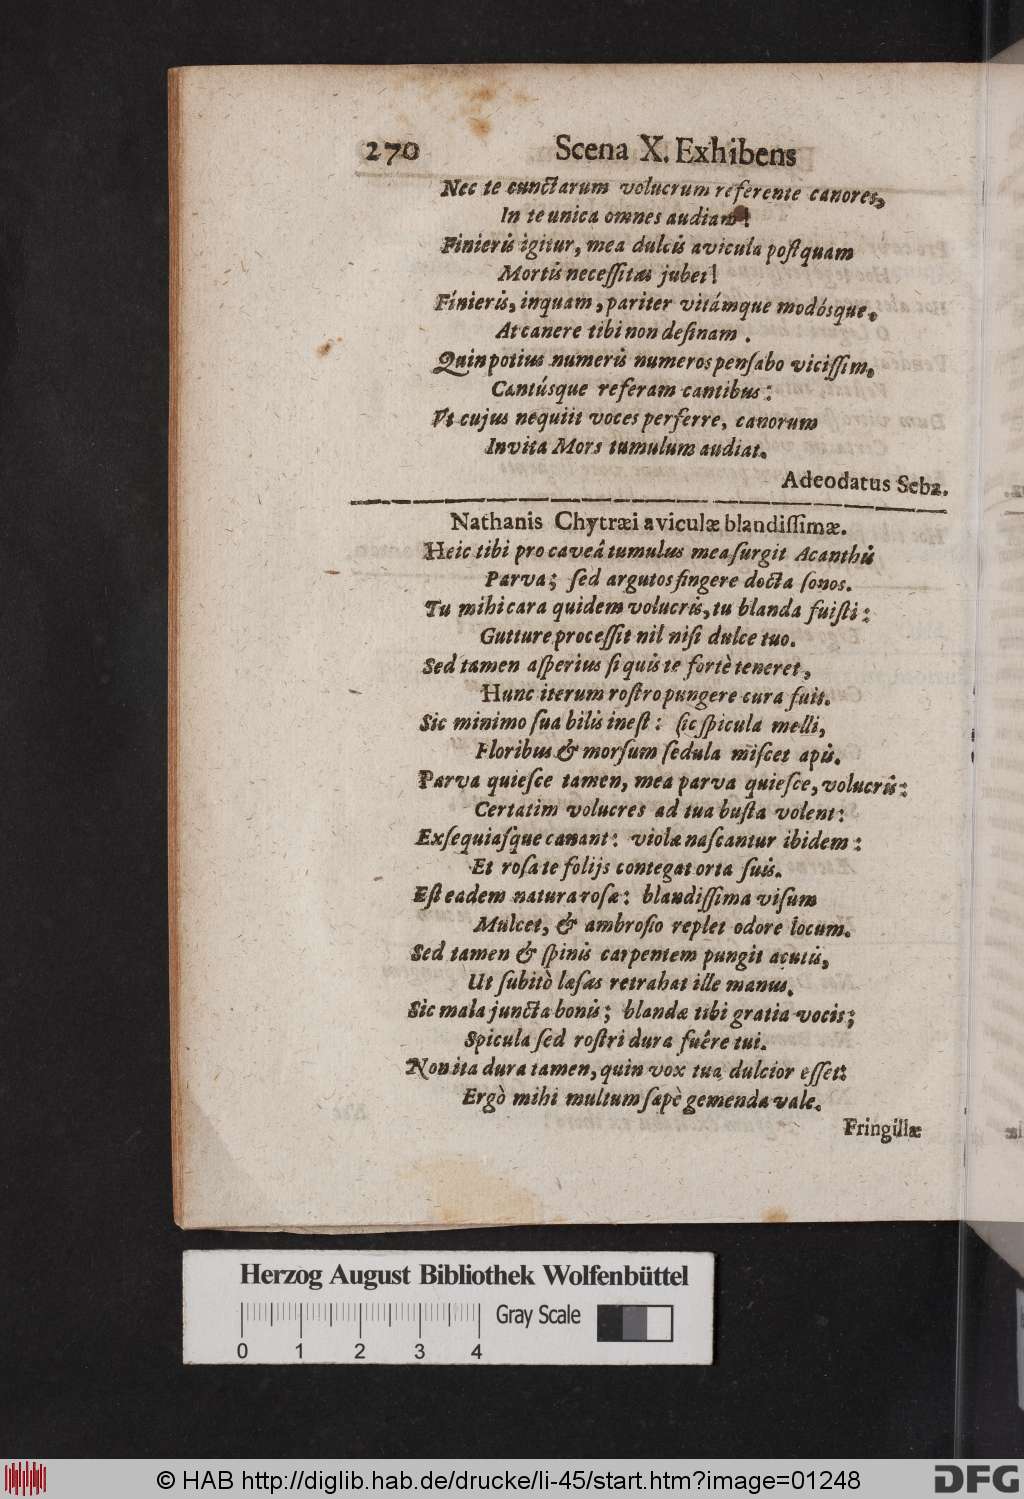 270 Scena X. Exhibens
Nec te cunctarum volucrum referente canores,
In te unica omnes audiam!
Finieris igitur, mea dulcis avicula postquam
Mortis necessitas jubet!
Fínieris, inquam, pariter vitámque modósque,
At canere tibi non desinam.
Quin potius numeris numeros pensabo vicissim,
Cantúsque referam cantibus:
Vt cujus nequiit voces perferre, canorum
Invita Mors tumulum audiat.
Adeodatus Seba.
Nathanis Chytræi aviculæ blandissimæ.
Heic tibi pro caveâ tumulus mea surgit Acanthi
Parva; sed argutos fingere docta sonos.
Tu mihi cara quidem volucris, tu blanda fuisti:
Gutture processit nil nisi dulce tuo.
Sed tamen asperius si quis te fortè teneret,
Hunc iterum rostro pungere cura fuit.
Sic minimo sua bilis inest: sic spicula melli,
Floribus & morsum sedula miscet apis.
Parva quiesce tamen, mea parva quiesce, volucris:
Certatim volucres ad tua busta volent:
Exsequiasque canant: violæ nascantur ibidem:
Et rosa te folijs contegat orta suis.
Est eadem natura rosæ: blandissima visum
Mulcet, & ambrosio replet odore locum.
Sed tamen & spinis carpentem pungit acutis,
Ut subitò læsas retrahat ille manus.
Sic mala juncta bonis; blandæ tibi gratia vocis;
Spicula sed rostri dura fuêre tui.
Non ita dura tamen, quin vox tua dulcior esset:
Ergò mihi multum sæpè gemenda vale.
Fringillæ
Herzog August Bibliothek Wolfenbüttel
Gray Scale
0 1 2 3 4
© HAB http://diglib.hab.de/drucke/li-45/start.htm?image=01248
DFG